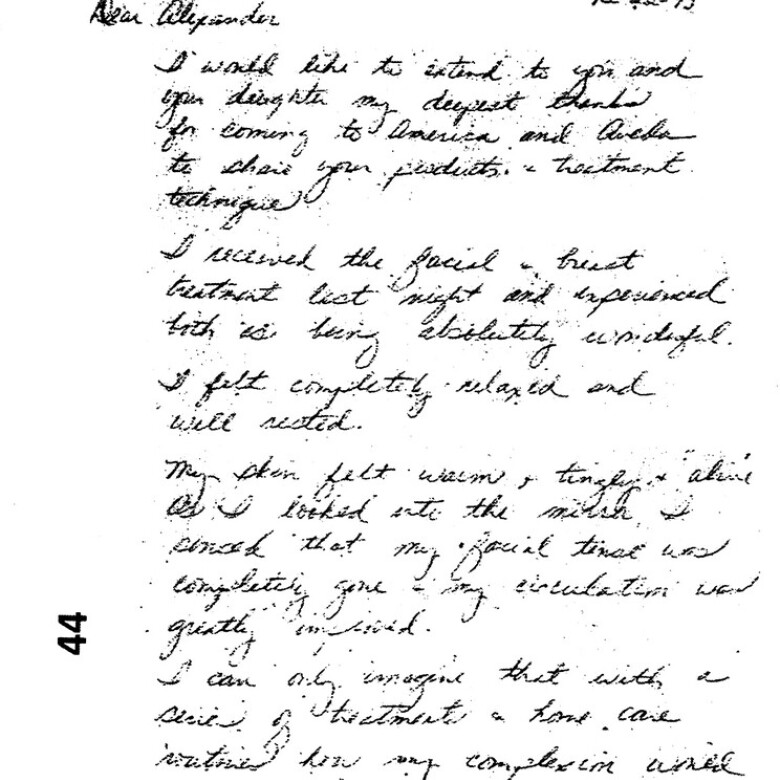 Dear Alexander
I would like to extend to you and
your daughter my deepest thanks
for coming to America and Aveda
to share your products. & treatment
technique
I received the facial & breast
treatment last night and experienced
both as being absolutely wonderful.
I felt completely relaxed and
well rested.
My skin felt warm, & tingly & "alive"
As I looked into the mirror I
sensed that my facial tense was
completely gone & my circulation was
greatly improved.
44
I can only imagine that with a
series of treatments & home care
routines how my complexion would